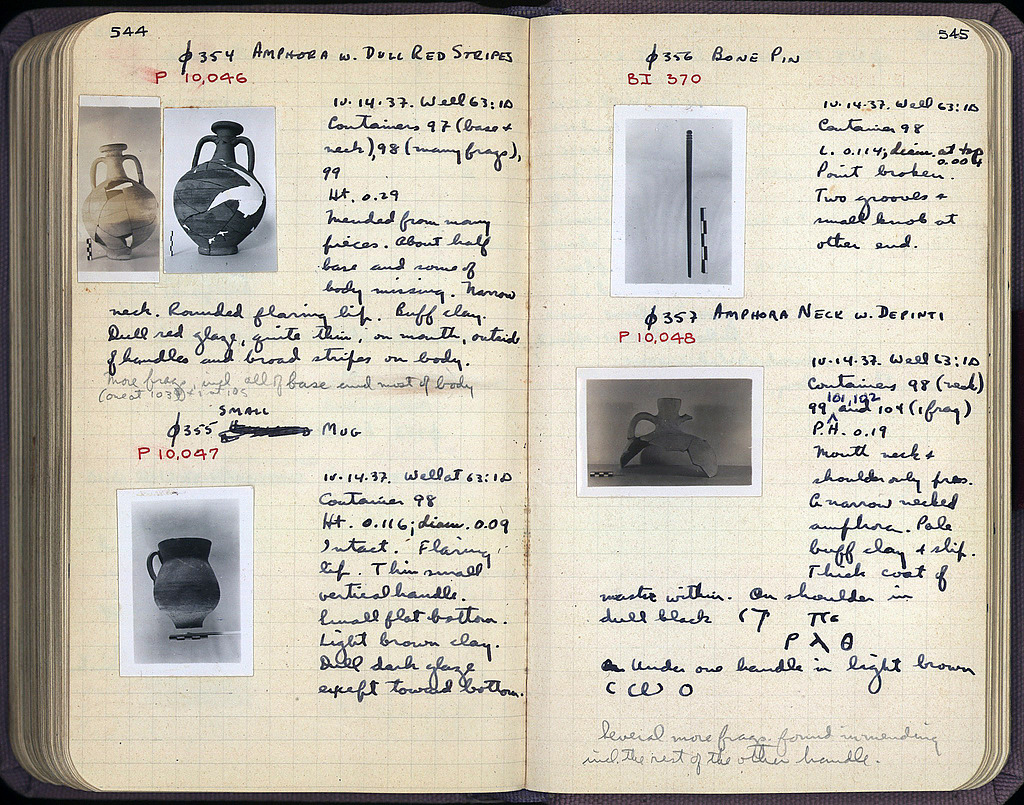 544
ɸ354 AMPHORA W. DULL RED STRIPES
P 10,046
IV.14.37. Well 63:ID
Containers 97 (base +
neck), 98 (many frags),
99
Ht. 0.29
Mended from many
pieces. About half
base and some of
body missing. Narrow
neck. Rounded flaring lip. Buff clay.
Dull red glaze, quite thin, on mouth, outside
of handles and broad stripes on body.
More frags, incl. all of base and most of body
(one at 103) + 1 at 105
SMALL
ɸ355 MUG
P 10,047
IV.14.37. Well at 63:ID
Container 98
Ht. 0.116; diam. 0.09
Intact. Flaring
lip. Thin small
vertical handle.
Small flat bottom.
Light brown clay.
Dull dark glaze
except toward bottom.
545
ɸ356 BONE PIN
BI 370
IV.14.37. Well 63:ID
Container 98
L. 0.114; diam. at top
0.004
Point broken.
Two grooves +
small knob at
other end.
ɸ357 AMPHORA NECK W. DEPINTI
P 10,048
IV.14.37. Well 63:ID
Containers 98 (neck)
101, 102
99 and 104 (1 frag)
P.H. 0.19
Mouth neck +
shoulder only pres.
A narrow necked
amphora. Pale
buff clay + slip.
Thick coat of
mastic within. On shoulder in
dull black
Ρ λ θ
Under one handle in light brown
Several more frags. found in mending
incl. the rest of the other handle.